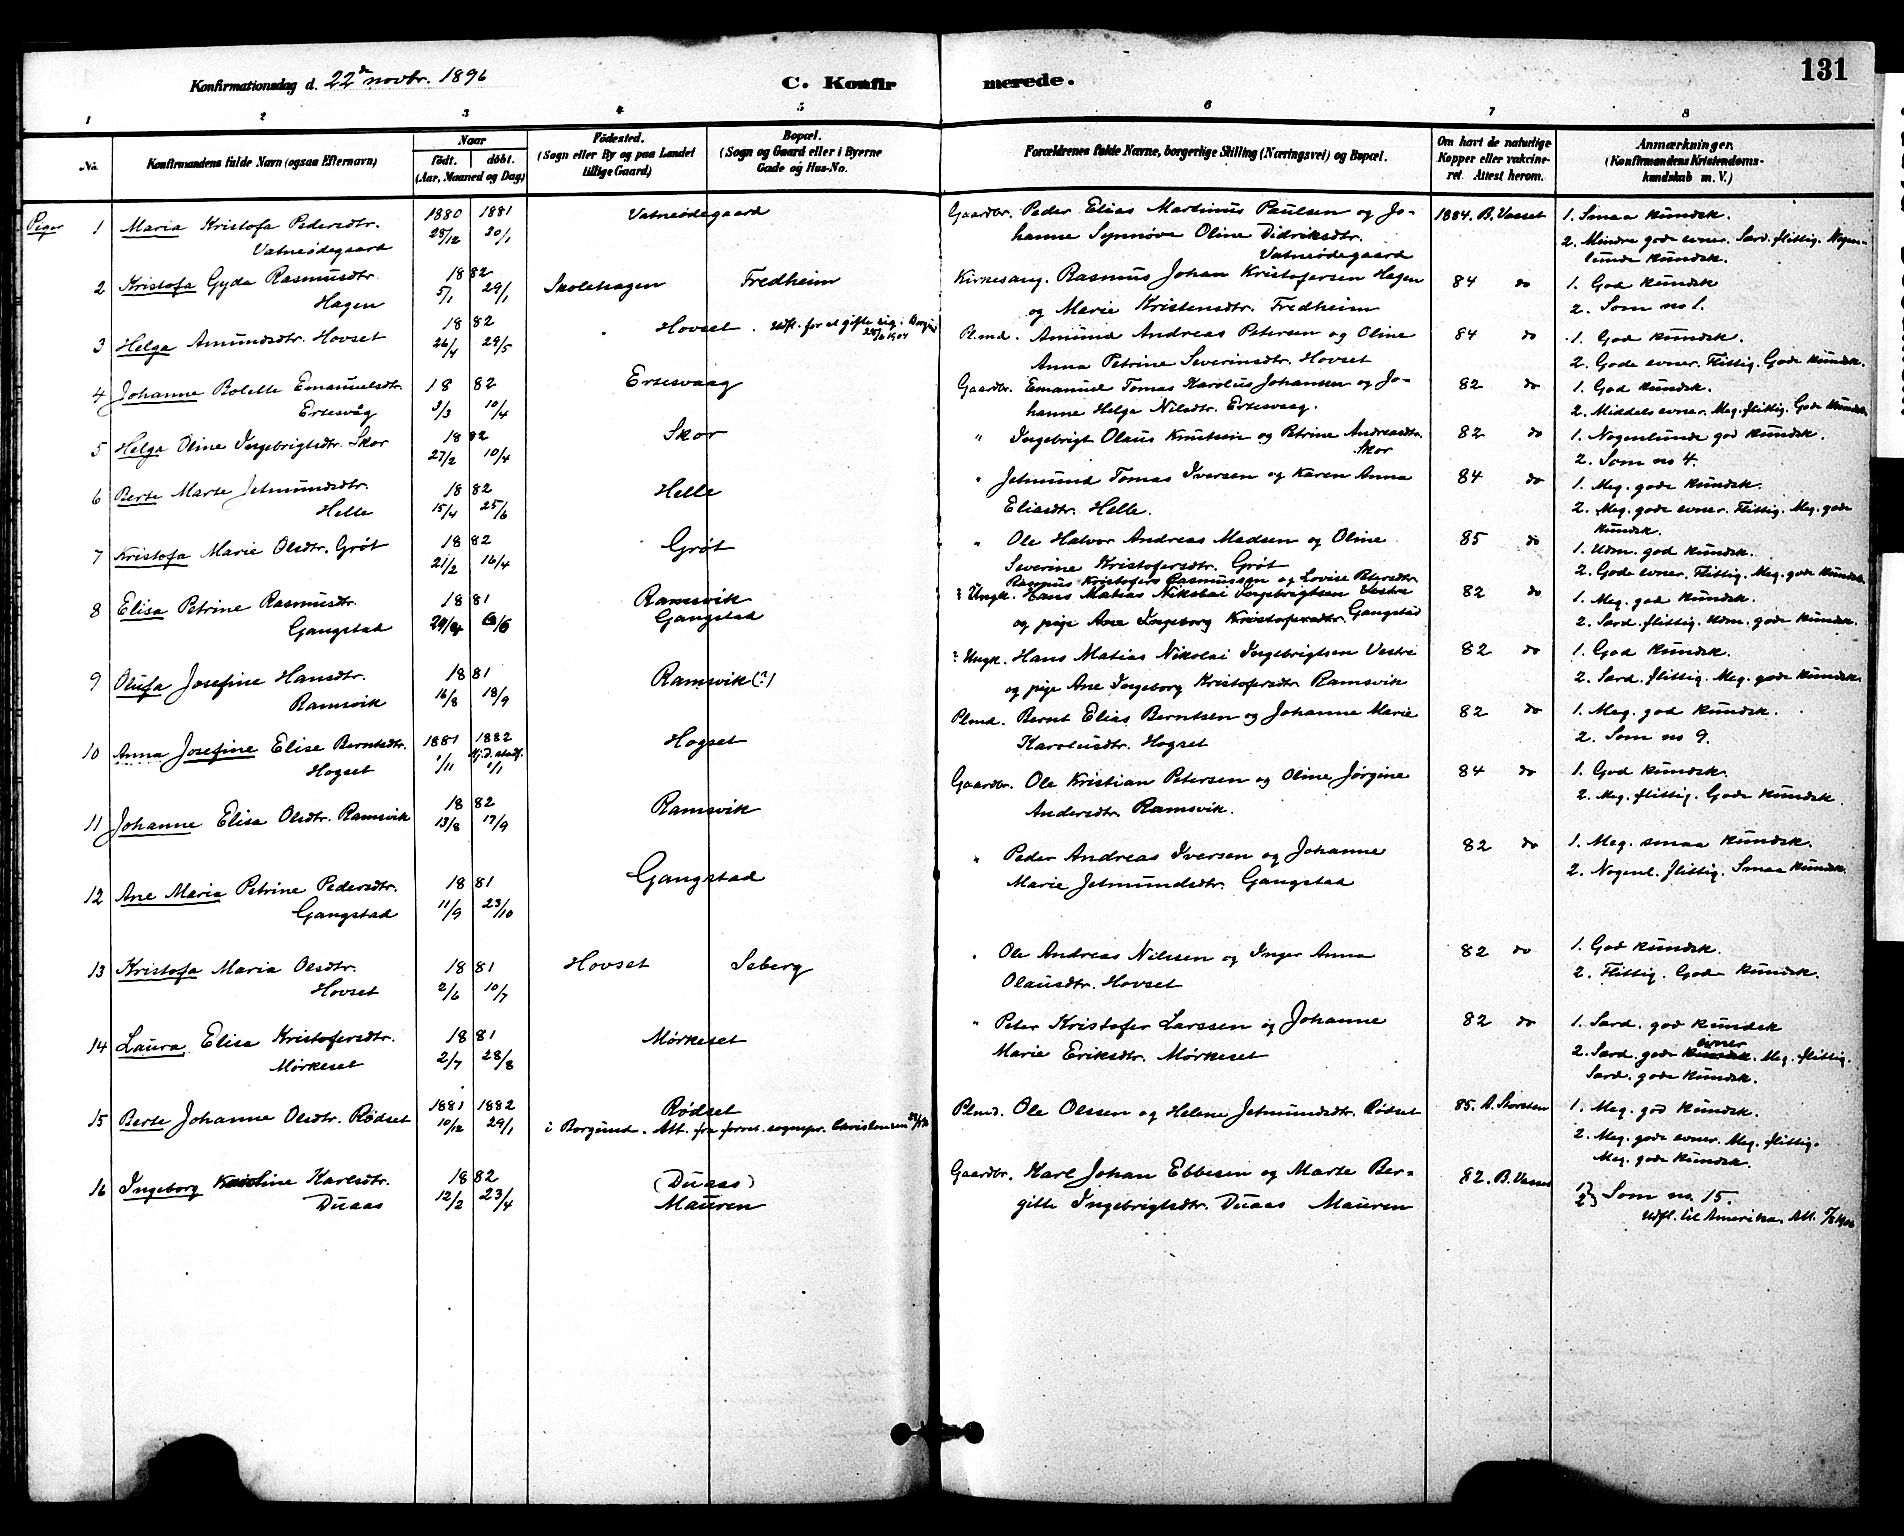 Konfirmationsdag d. 22de novbr. 1896
C. Konfirmerede.
131
1 2 3 4 5 6 7 8
No.
Konfirmandens fulde Navn (ogsaa Efternavn)
Naar
født. døbt.
(Aar, Maaned og Dag)
Fødested.
(Sogn eller By og paa Landet
tillige Gaard)
Bopæl.
(Sogn og Gaard eller i Byerne
Gade og Hus-No.
Forældrenes fulde Navne, borgerlige Stilling (Næringsvei) og Bopæl.
Om havt de naturlige
Kopper eller vakcine-
ret. Attest herom.
Anmærkninger.
(Konfirmandens Kristendoms-
kundskab m. V.)
Piger
1 Maria Kristofa Pedersdtr. 1880 1881 Vatneødegaard Gaardbr. Peder Elias Martinus Paulsen og Jo- 1884. B. Vasset 1. Smaa kundsk.
Vatneødegaard 28/12 30/1 hanne Synnøve Oline Didriksdtr. 2. Mindre gode evner. Sard. flittig. Nogen-
Vatneødegaard lunde kundsk.
2 Kristofa Gyda Rasmusdtr. 1882 Skolehagen Fredheim Kirkesang. Rasmus Johan Kristofersen Hagen 84 do 1. God kundsk
Hagen 5/1 29/1 og Marie Kristensdtr. Fredheim 2. Som no 1.
3 Helga Amundsdtr. Hovset 1882 Hovset. Udfl. for at gifte sig i Borgund Plmd. Amund Andreas Petersen og Oline 84 do 1. God kundsk.
26/4 29/5 Anna Petrine Severinsdtr. Hovset 2. Gode evner. Flittig. Gode kundsk.
4 Johanne Bolette Emanuelsdtr. 1882 Ertesvaag Gaardbr. Emanuel Tomas Karolus Johansen og Jo- 82 do 1. God kundsk.
Ertesvåg 3/3 10/4 hanne Helga Nilsdtr. Ertesvaag. 2. Middels evner. Meg. flittig. Gode kundsk.
5 Helga Oline Ingebrigtsdtr. Skor 1882 Skor " Ingebrigt Olaus Knutsen og Petrine Andreasdtr. 82 do 1. Nogenlunde god kundsk.
27/2 10/4 Skor 2. Som no 4.
6 Berte Marte Jetmundsdtr. 1882 Helle " Jetmund Tomas Iversen og Karen Anna 84 do 1. Meg. gode kundsk.
Helle 15/4 25/6 Eliasdtr. Helle. 2. Meg. gode evner. Flittig. Meg. gode
kundsk.
7 Kristofa Marie Olsdtr. Grøt 1882 Grøt " Ole Halvor Andreas Madsen og Oline 85 do 1. Udm. god kundsk.
21/2 16/4 Severine Kristofersdtr. Grøt 2. Gode evner. Flittig. Meg. gode kundsk.
Rasmus Kristofers Rasmussen og Lovise Petersdtr.
8 Elisa Petrine Rasmusdtr. 1881 Ramsvik Ungk. Hans Matias Nikolai Ingebrigtsen Vestre 82 do 1. Meg. god kundsk.
Gangstad 29/4 6/6 Gangstad og pige Ane Ingeborg Kristofersdtr. Gangstad 2. Sard. flittig. Udm. gode kundsk.
9 Olufa Josefine Hansdtr. 1881 Ramsvik (?) Ungk. Hans Matias Nikolai Ingebrigtsen Vestre 82 do 1. God kundsk.
Ramsvik 16/8 18/9 og pige Ane Ingeborg Kristofersdtr. Ramsvik 2. Sard. flittig. Meg. gode kundsk.
10 Anna Josefine Elise Berntsdtr. 1881 1882 Hogset Plmd. Bernt Elias Berntsen og Johanne Marie 82 do 1. Meg. god kundsk.
Hogset 1/11 Hj.d. stadf. 1/1 Karolusdtr. Hogset 2. Som no 9.
11 Johanne Elisa Olsdtr. Ramsvik 1882 Ramsvik Gaardbr. Ole Kristian Petersen og Oline Jørgine 84 do 1. God kundsk.
13/8 17/9 Andersdtr. Ramsvik. 2. Meg. flittig. Gode kundsk.
12 Ane Maria Petrine Pedersdtr. 1881 Gangstad " Peder Andreas Iversen og Johanne 82 do 1. Meg. smaa kundsk.
Gangstad 11/9 23/10 Marie Jetmundsdtr. Gangstad 2. Nogenl. flittig. Smaa kundsk.
13 Kristofa Maria Olsdtr. 1881 Hovset Seberg " Ole Andreas Nilssen og Inger Anna 82 do 1. God kundsk.
Hovset 2/6 10/7 Olausdtr. Hovset 2. Flittig. Gode kundsk.
14 Laura Elisa Kristofersdtr. 1881 Mørkeset " Peter Kristofer Larssen og Johanne 82 do 1. Sard. god kundsk
Mørkeset 2/7 28/8 Marie Eriksdtr. Mørkeset 2. Sard. gode kundsk. evner. Meg. flittig.
Sard. gode kundsk.
15 Berte Johanne Olsdtr. Rødset 1881 1882 Rødset Plmd. Ole Olssen og Helene Jetmundsdtr. Rødset 85. A. Storsten 1. Meg. god kundsk.
10/12 29/1 i Borgund. Att. fra forret. sognepr. Christensen 2. Meg. gode evner. Meg. flittig.
Meg. gode kundsk.
16 Ingeborg Karlsdtr. 1882 (Duaas) Gaardbr. Karl Johan Ebbesen og Marte Ber- 82. B. Vasset 1. 2. Som no. 15.
Duaas 12/2 23/4 Mauren gitte Ingebrigtsdtr. Duaas Mauren Udfl. til Amerika. Att.